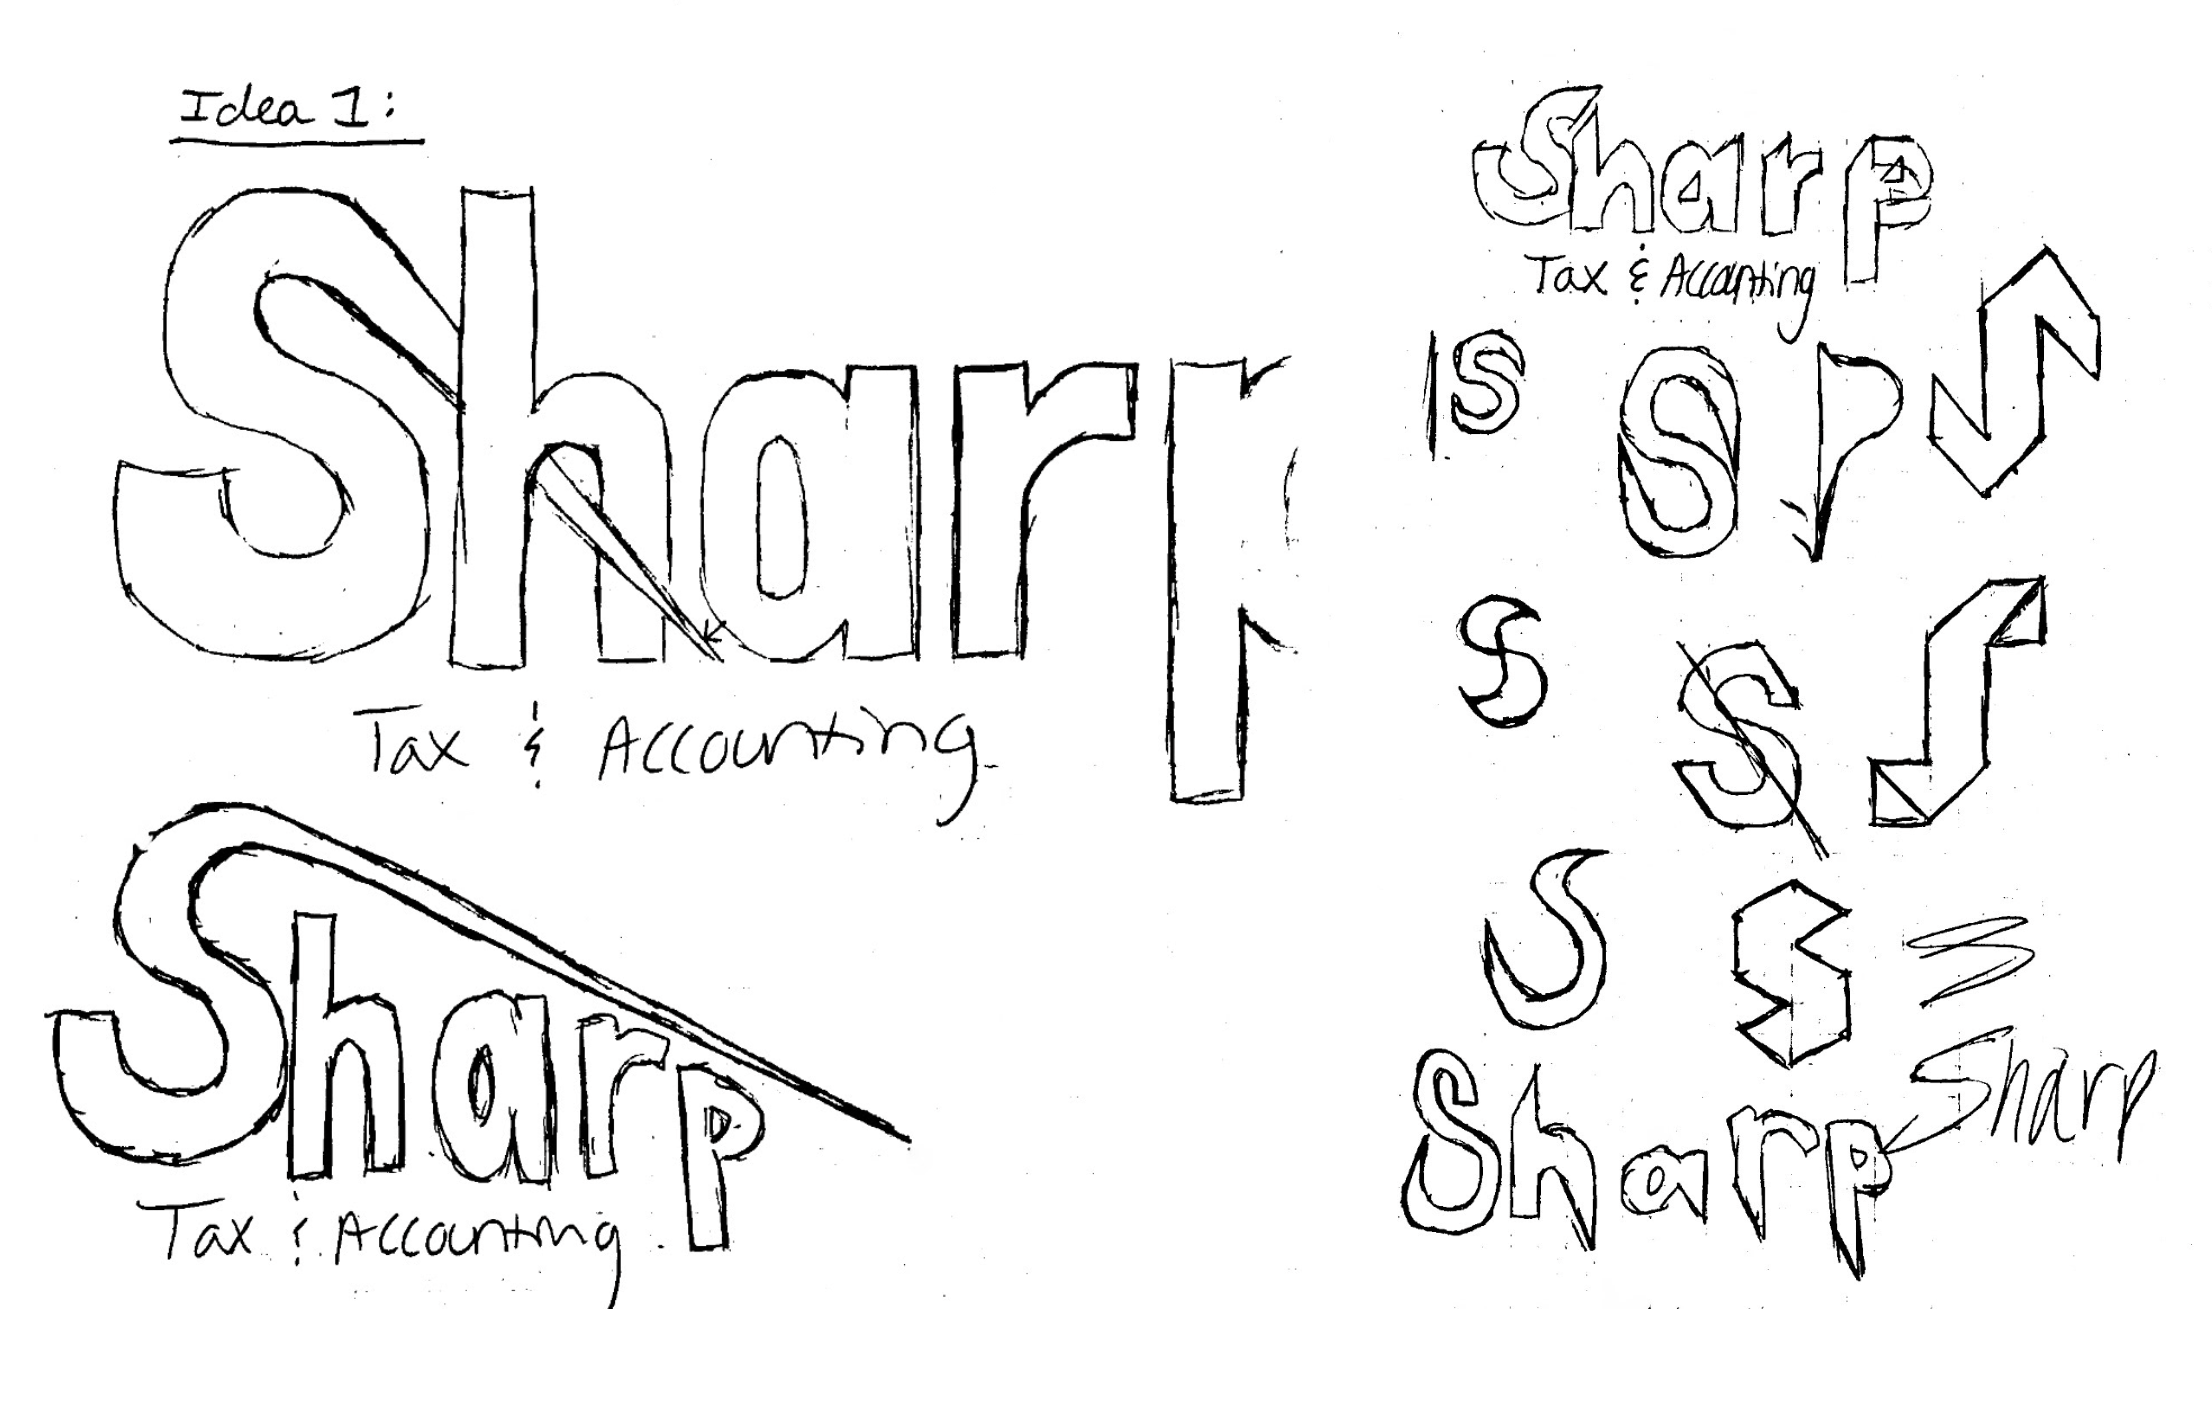 Idea 1:
Sharp
Tax & Accounting
Sharp
Tax & Accounting
Sharp
Tax & Accounting
S
S
P
S
S
S
S
S
S
S
Sharp
Sharp